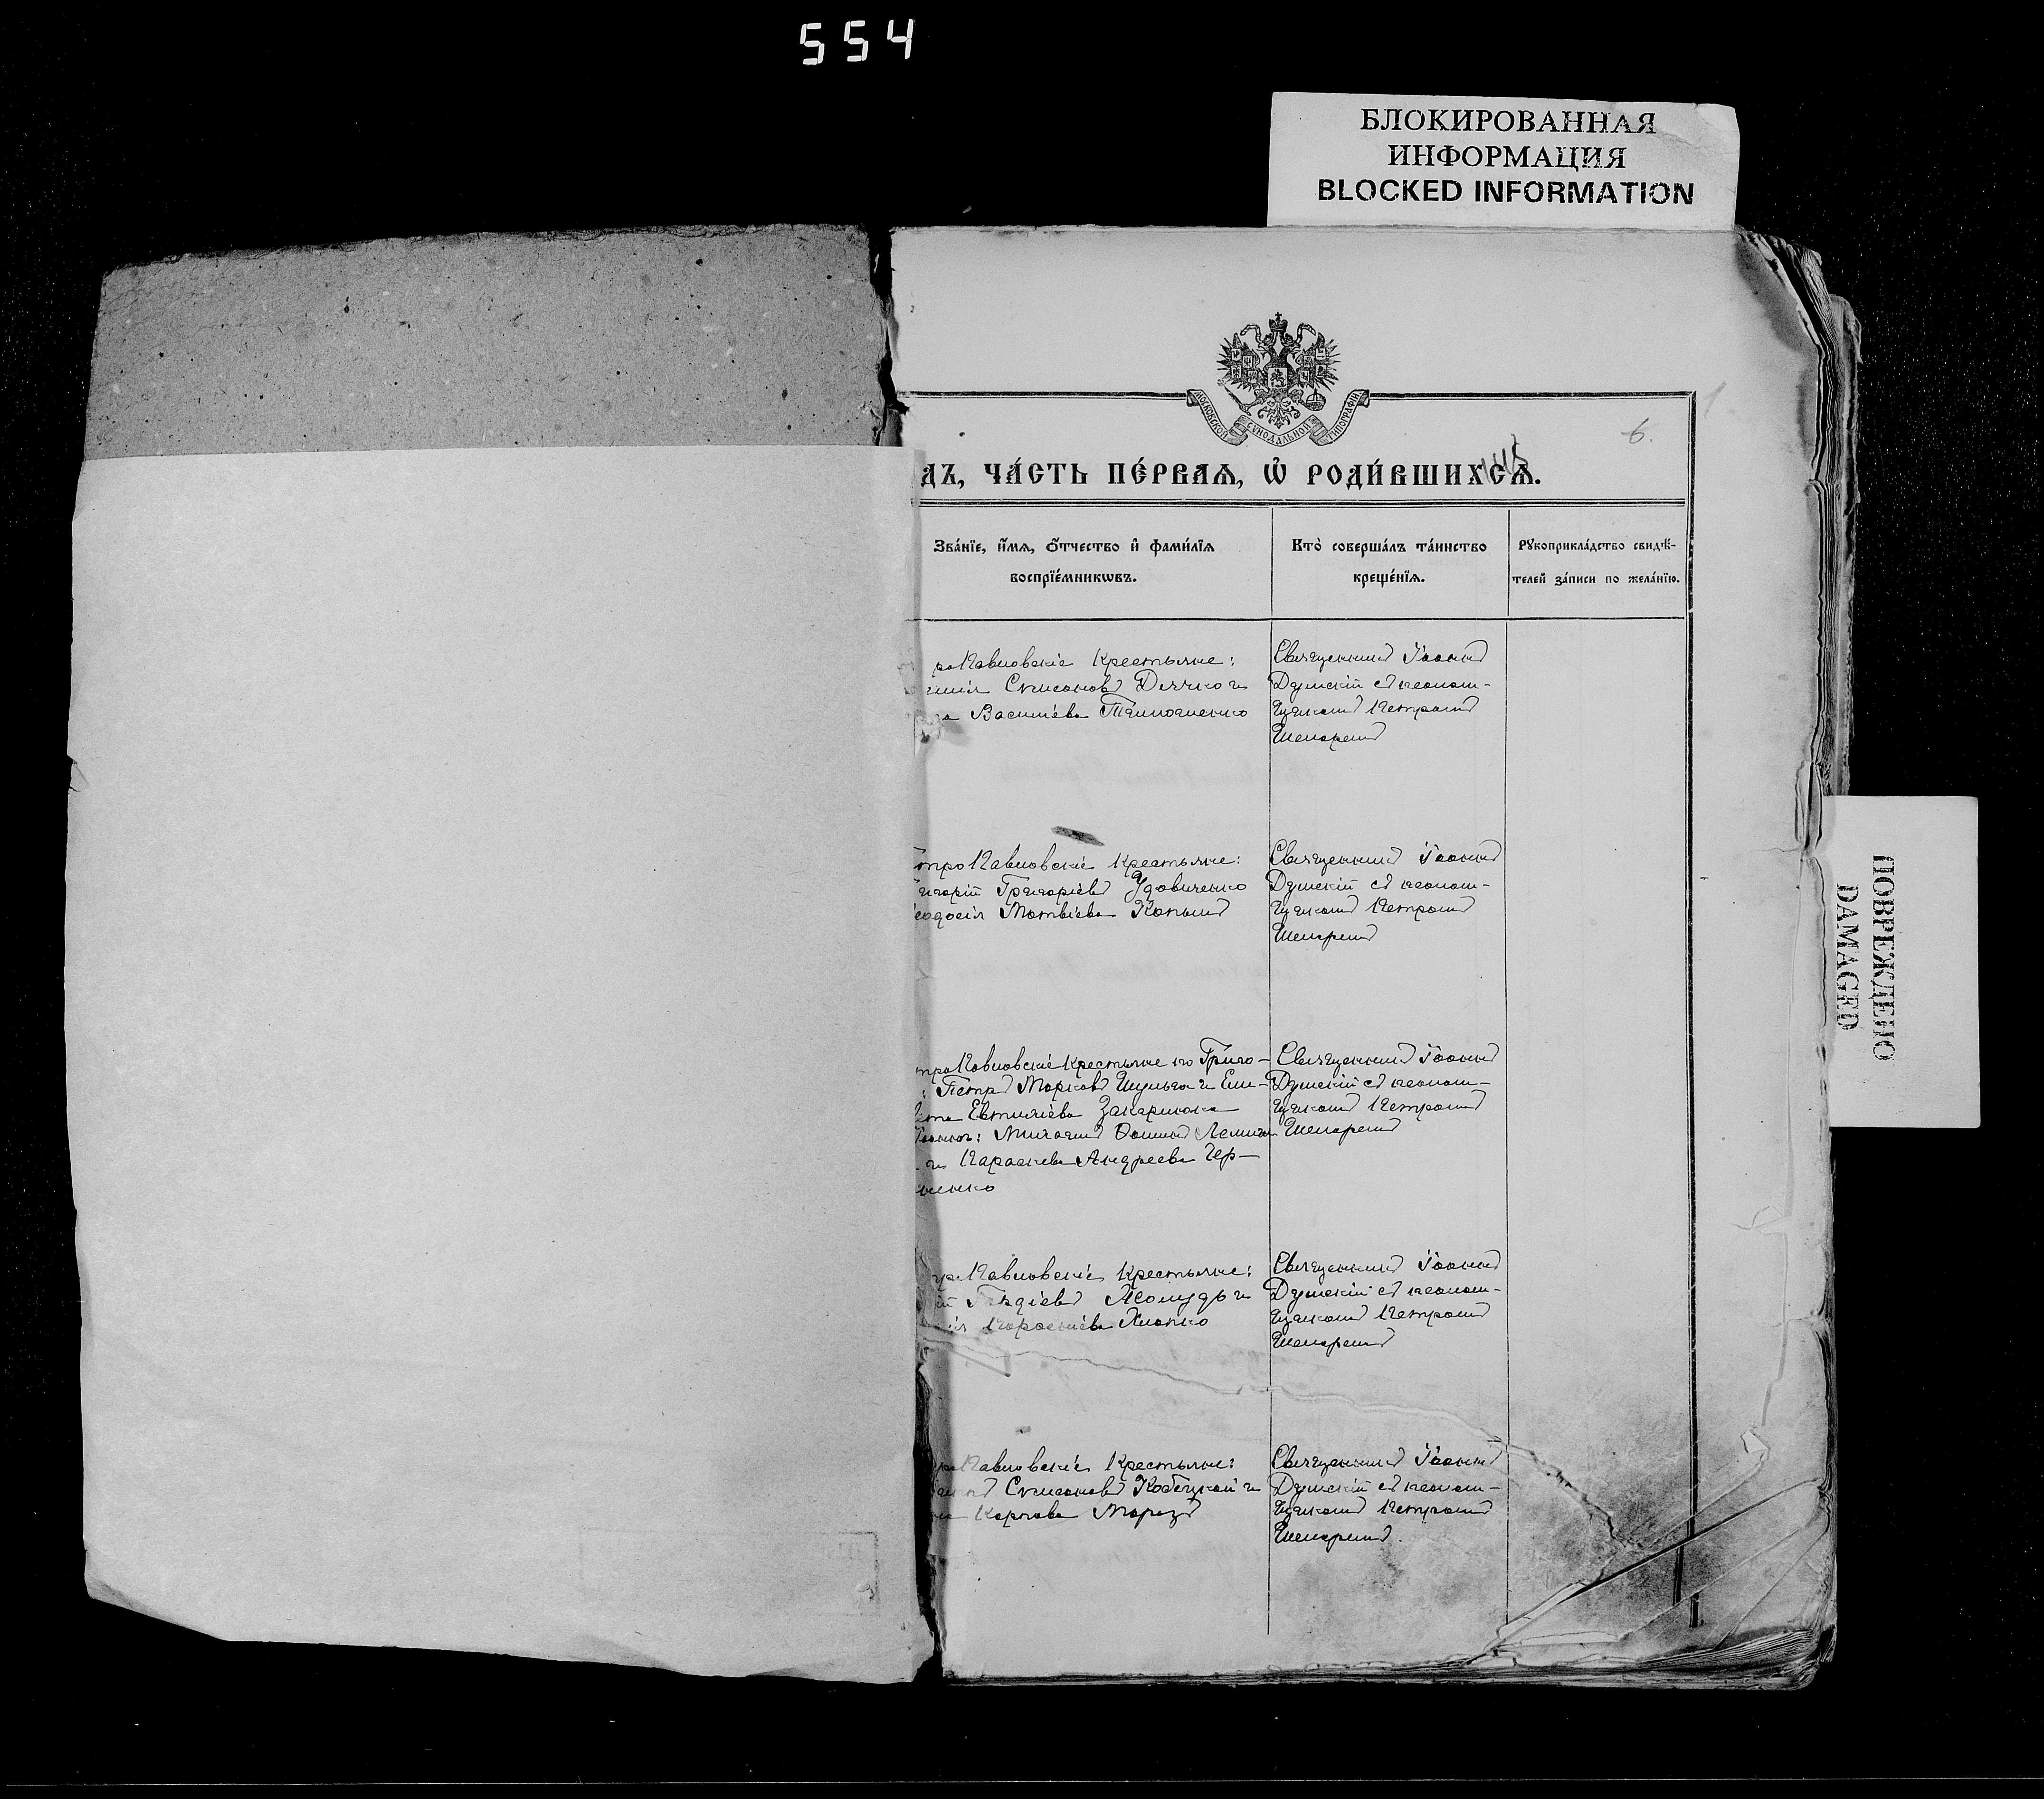 554
БЛОКИРОВАННАЯ
ИНФОРМАЦИЯ
BLOCKED INFORMATION
МОСКОВСКОЙ СѴНОДАЛЬНОЙ ТИПОГРАФІИ
6.
дъ, ча́сть пе́рваѧ, ѡ҆ роди́вшихсѧ.
Зва́нїе, и҆́мѧ, ѻ҆́тчество и҆ фами́лїѧ
воспрїе́мникѡвъ.
Кто̀ соверша́лъ та́инство
креще́нїѧ.
Рꙋкоприкла́дство свидѣ́-
телей за́писи по жела́нїю.
Павловскіе крестьяне:
Симеоновъ Дячко и
Васильева Тимошенко
Священникъ Іоаннъ
Думскій съ псалом-
щикомъ Петромъ
Шепорем
тро Павловскіе крестьяне:
Григорьевъ Удовиченко
Матвіева Копыл
Священникъ Іоаннъ
Думскій съ псалом-
щикомъ Петромъ
Шепорем
Павловскіе крестьяне по Григо-
Петръ Марковъ Шульга и Ели-
Евтихіева Захарченко
Михаилъ Ѳоминъ
и Параскева Андреева Чер-
ненко
Священникъ Іоаннъ
Думскій съ псалом-
щикомъ Петромъ
Шепорем
Павловскіе крестьяне:
и
Хлопко
Священникъ Іоаннъ
Думскій съ псалом-
щикомъ Петромъ
Шепорем
Павловскіе крестьяне:
Симеоновъ Кобецкой и
Карпова Морозъ
Священникъ Іоаннъ
Думскій съ псалом-
щикомъ Петромъ
Шепорем
ПОВРЕЖДЕНО
DAMAGED